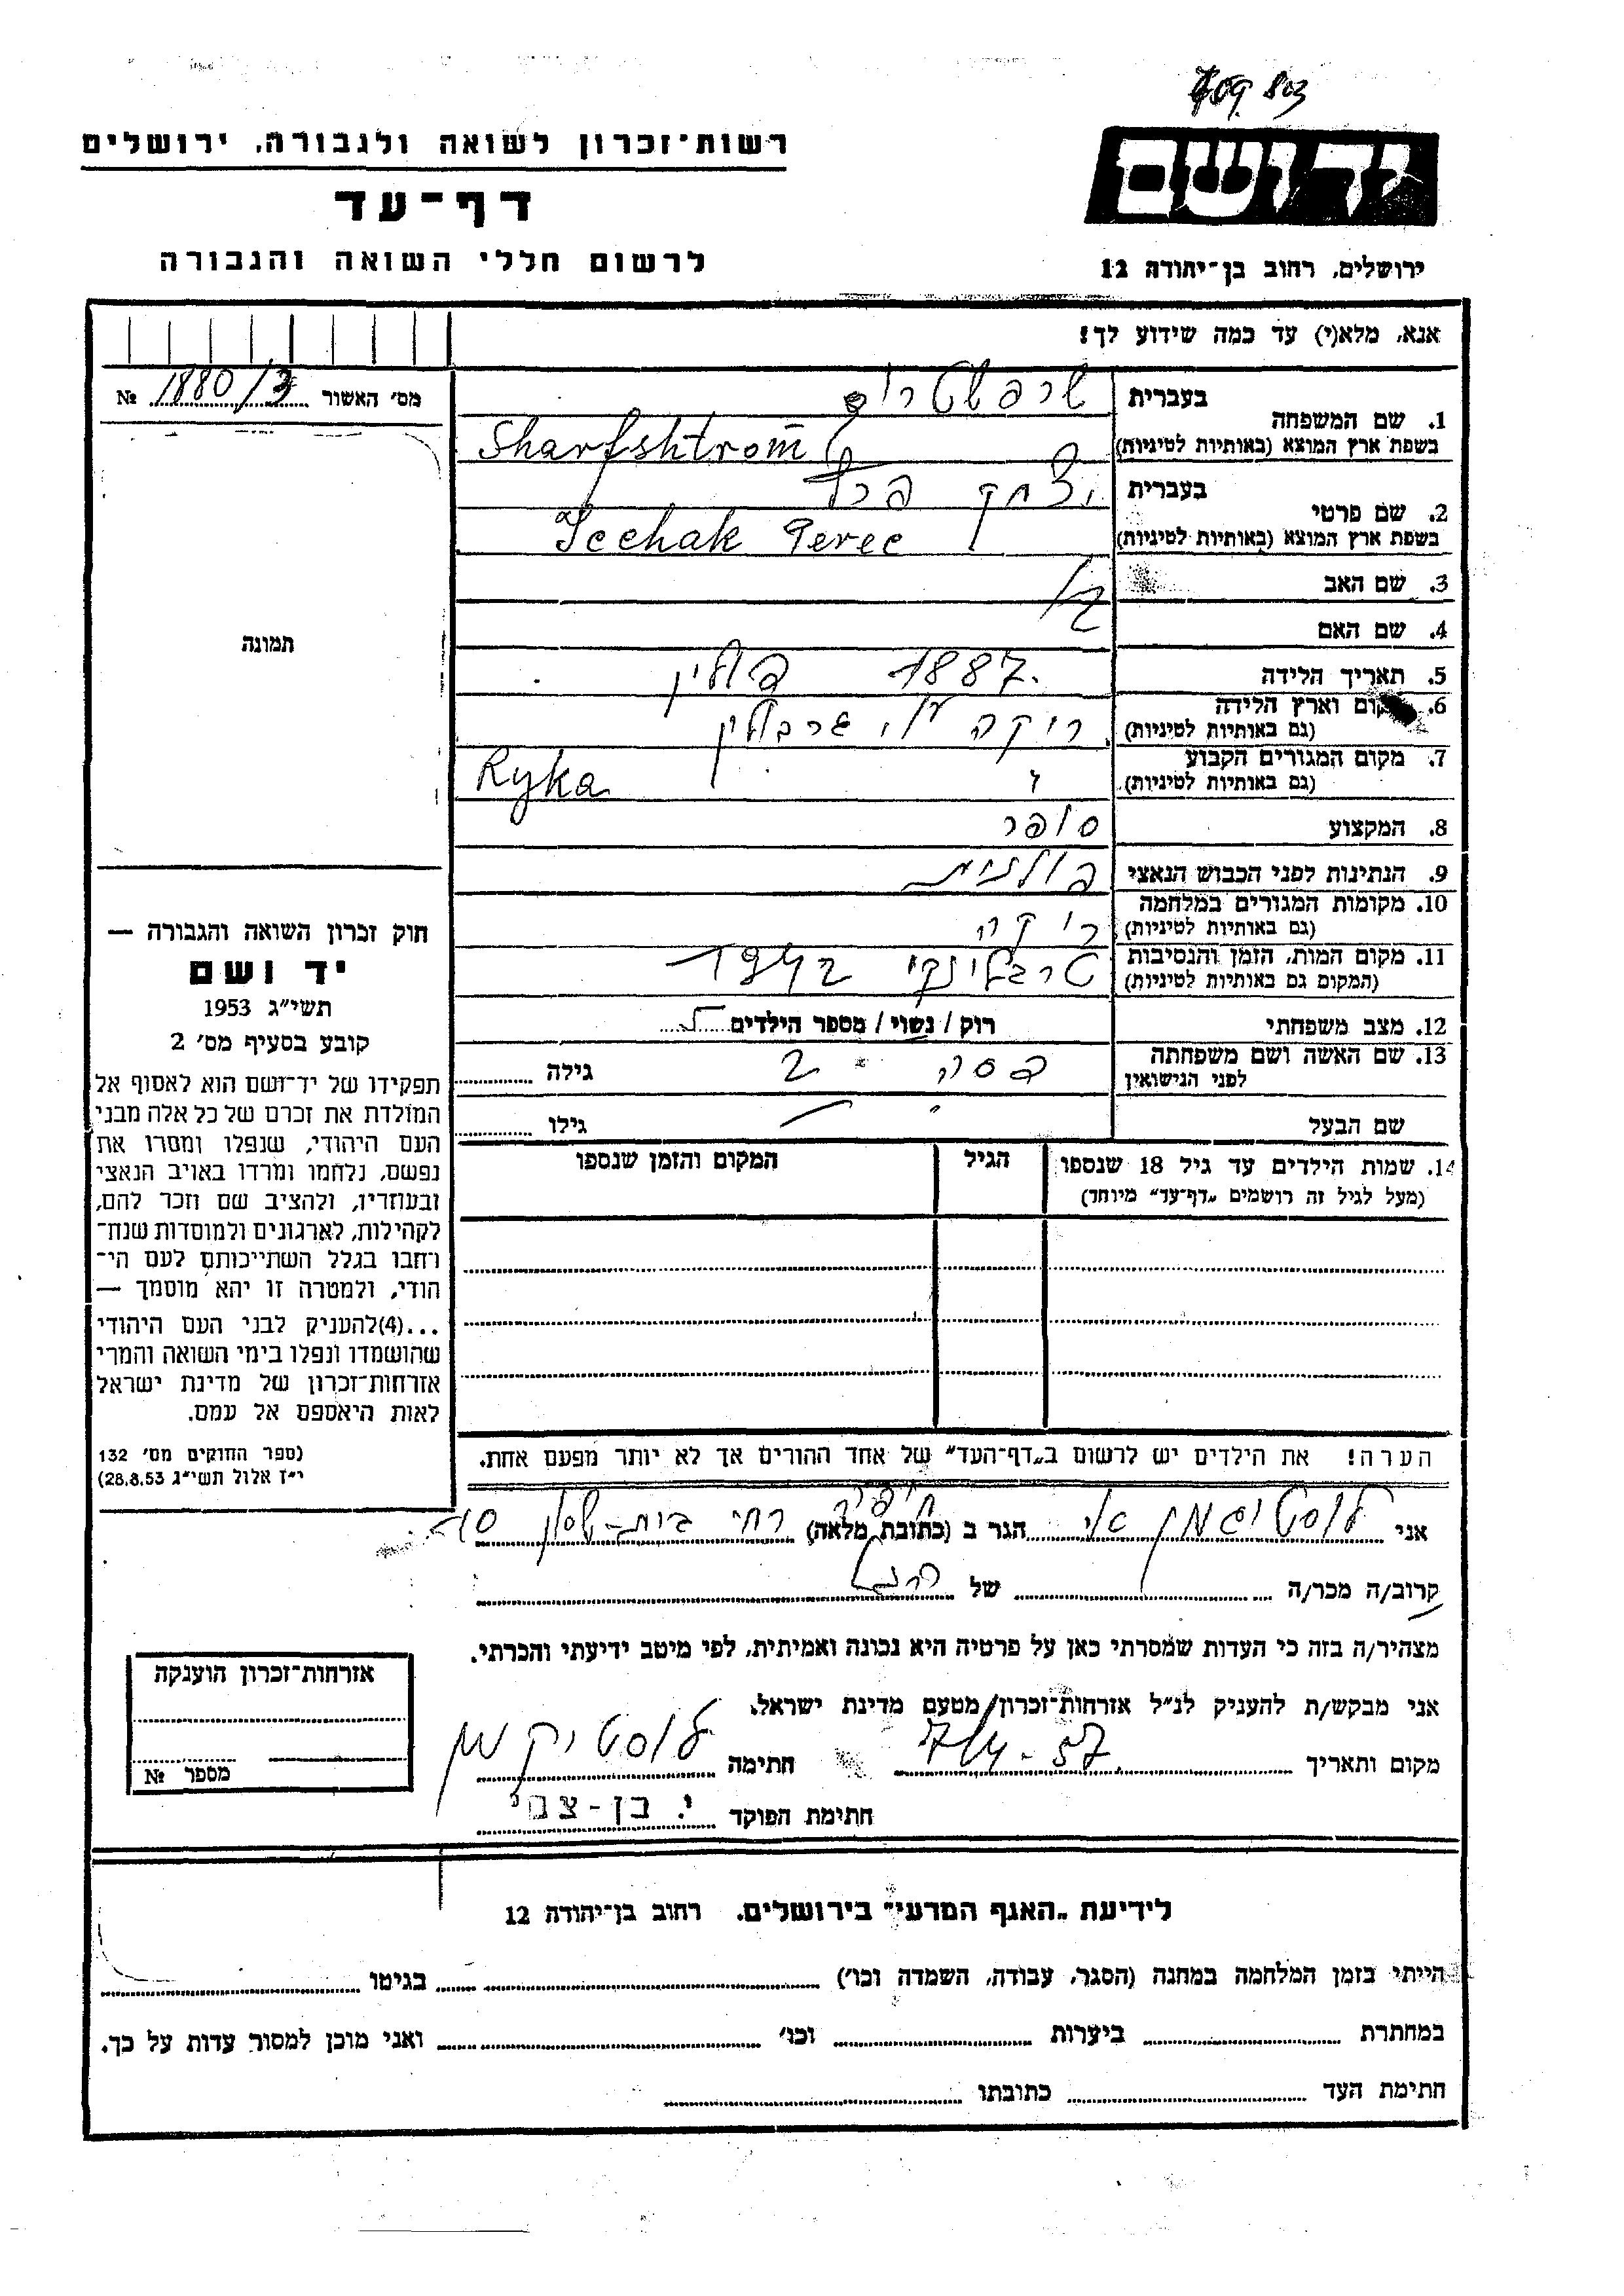 709.803
רשות-זכרון לשואה ולגבורה, ירושלים
דף-עד
לרשום חללי השואה והגבורה
יד ושם
ירושלים, רחוב בן-יהודה 12
אנא, מלא(י) עד כמה שידוע לך!
מס׳ האשור 1880/3 №
תמונה
1. שם המשפחה
בעברית שרפשטרום
בשפת ארץ המוצא (באותיות לטיניות) Sharfshtrom
2. שם פרטי
בעברית יצחק פרץ
בשפת ארץ המוצא (באותיות לטיניות) Icchak Perec
3. שם האב
4. שם האם
5. תאריך הלידה 1887 פולין
6. מקום וארץ הלידה
(גם באותיות לטיניות) ריקה ע״י
7. מקום המגורים הקבוע
(גם באותיות לטיניות) Ryka
8. המקצוע סופר
9. הנתינות לפני הכבוש הנאצי פולנית
10. מקומות המגורים במלחמה
(גם באותיות לטיניות) ריקה
11. מקום המות, הזמן והנסיבות
(המקום גם באותיות לטיניות) טרבלינקי 1942
12. מצב משפחתי רוק/נשוי/מספר הילדים
13. שם האשה ושם משפחתה
לפני הנישואין פסה גילה
שם הבעל גילו
14. שמות הילדים עד גיל 18 שנספו
(מעל לגיל זה רושמים „דף-עד״ מיוחד)
הגיל
המקום והזמן שנספו
הערה! את הילדים יש לרשום ב„דף-העד״ של אחד ההורים אך לא יותר מפעם אחת.
חוק זכרון השואה והגבורה —
יד ושם
תשי״ג 1953
קובע בסעיף מס׳ 2
תפקידו של יד-ושם הוא לאסוף אל
המולדת את זכרם של כל אלה מבני
העם היהודי, שנפלו ומסרו את
נפשם, נלחמו ומרדו באויב הנאצי
ובעוזריו, ולהציב שם וזכר להם,
לקהילות, לארגונים ולמוסדות שנח־
רבו בגלל השתייכותם לעם הי־
הודי, ולמטרה זו יהא מוסמך —
...(4)להעניק לבני העם היהודי
שהושמדו ונפלו בימי השואה והמרי
אזרחות-זכרון של מדינת ישראל
לאות היאספם אל עמם.
(ספר החוקים מס׳ 132
י״ז אלול תשי״ג 28.8.53)
אני לוסטיגמן הגר ב (כתובת מלאה) חיפה רח׳
קרוב/ה מכר/ה של
מצהיר/ה בזה כי העדות שמסרתי כאן על פרטיה היא נכונה ואמיתית, לפי מיטב ידיעתי והכרתי.
אני מבקש/ת להעניק לנ״ל אזרחות-זכרון/מטעם מדינת ישראל.
מקום ותאריך 7/4-57 חתימה לוסטיקמן
חתימת הפוקד י. בן-צבי
אזרחות-זכרון הוענקה
מספר №
לידיעת „האגף המדעי״ בירושלים, רחוב בן-יהודה 12
הייתי בזמן המלחמה במחנה (הסגר, עבודה, השמדה וכו׳) בגיטו
במחתרת ביערות וכו׳ ואני מוכן למסור עדות על כך.
חתימת העד כתובתו